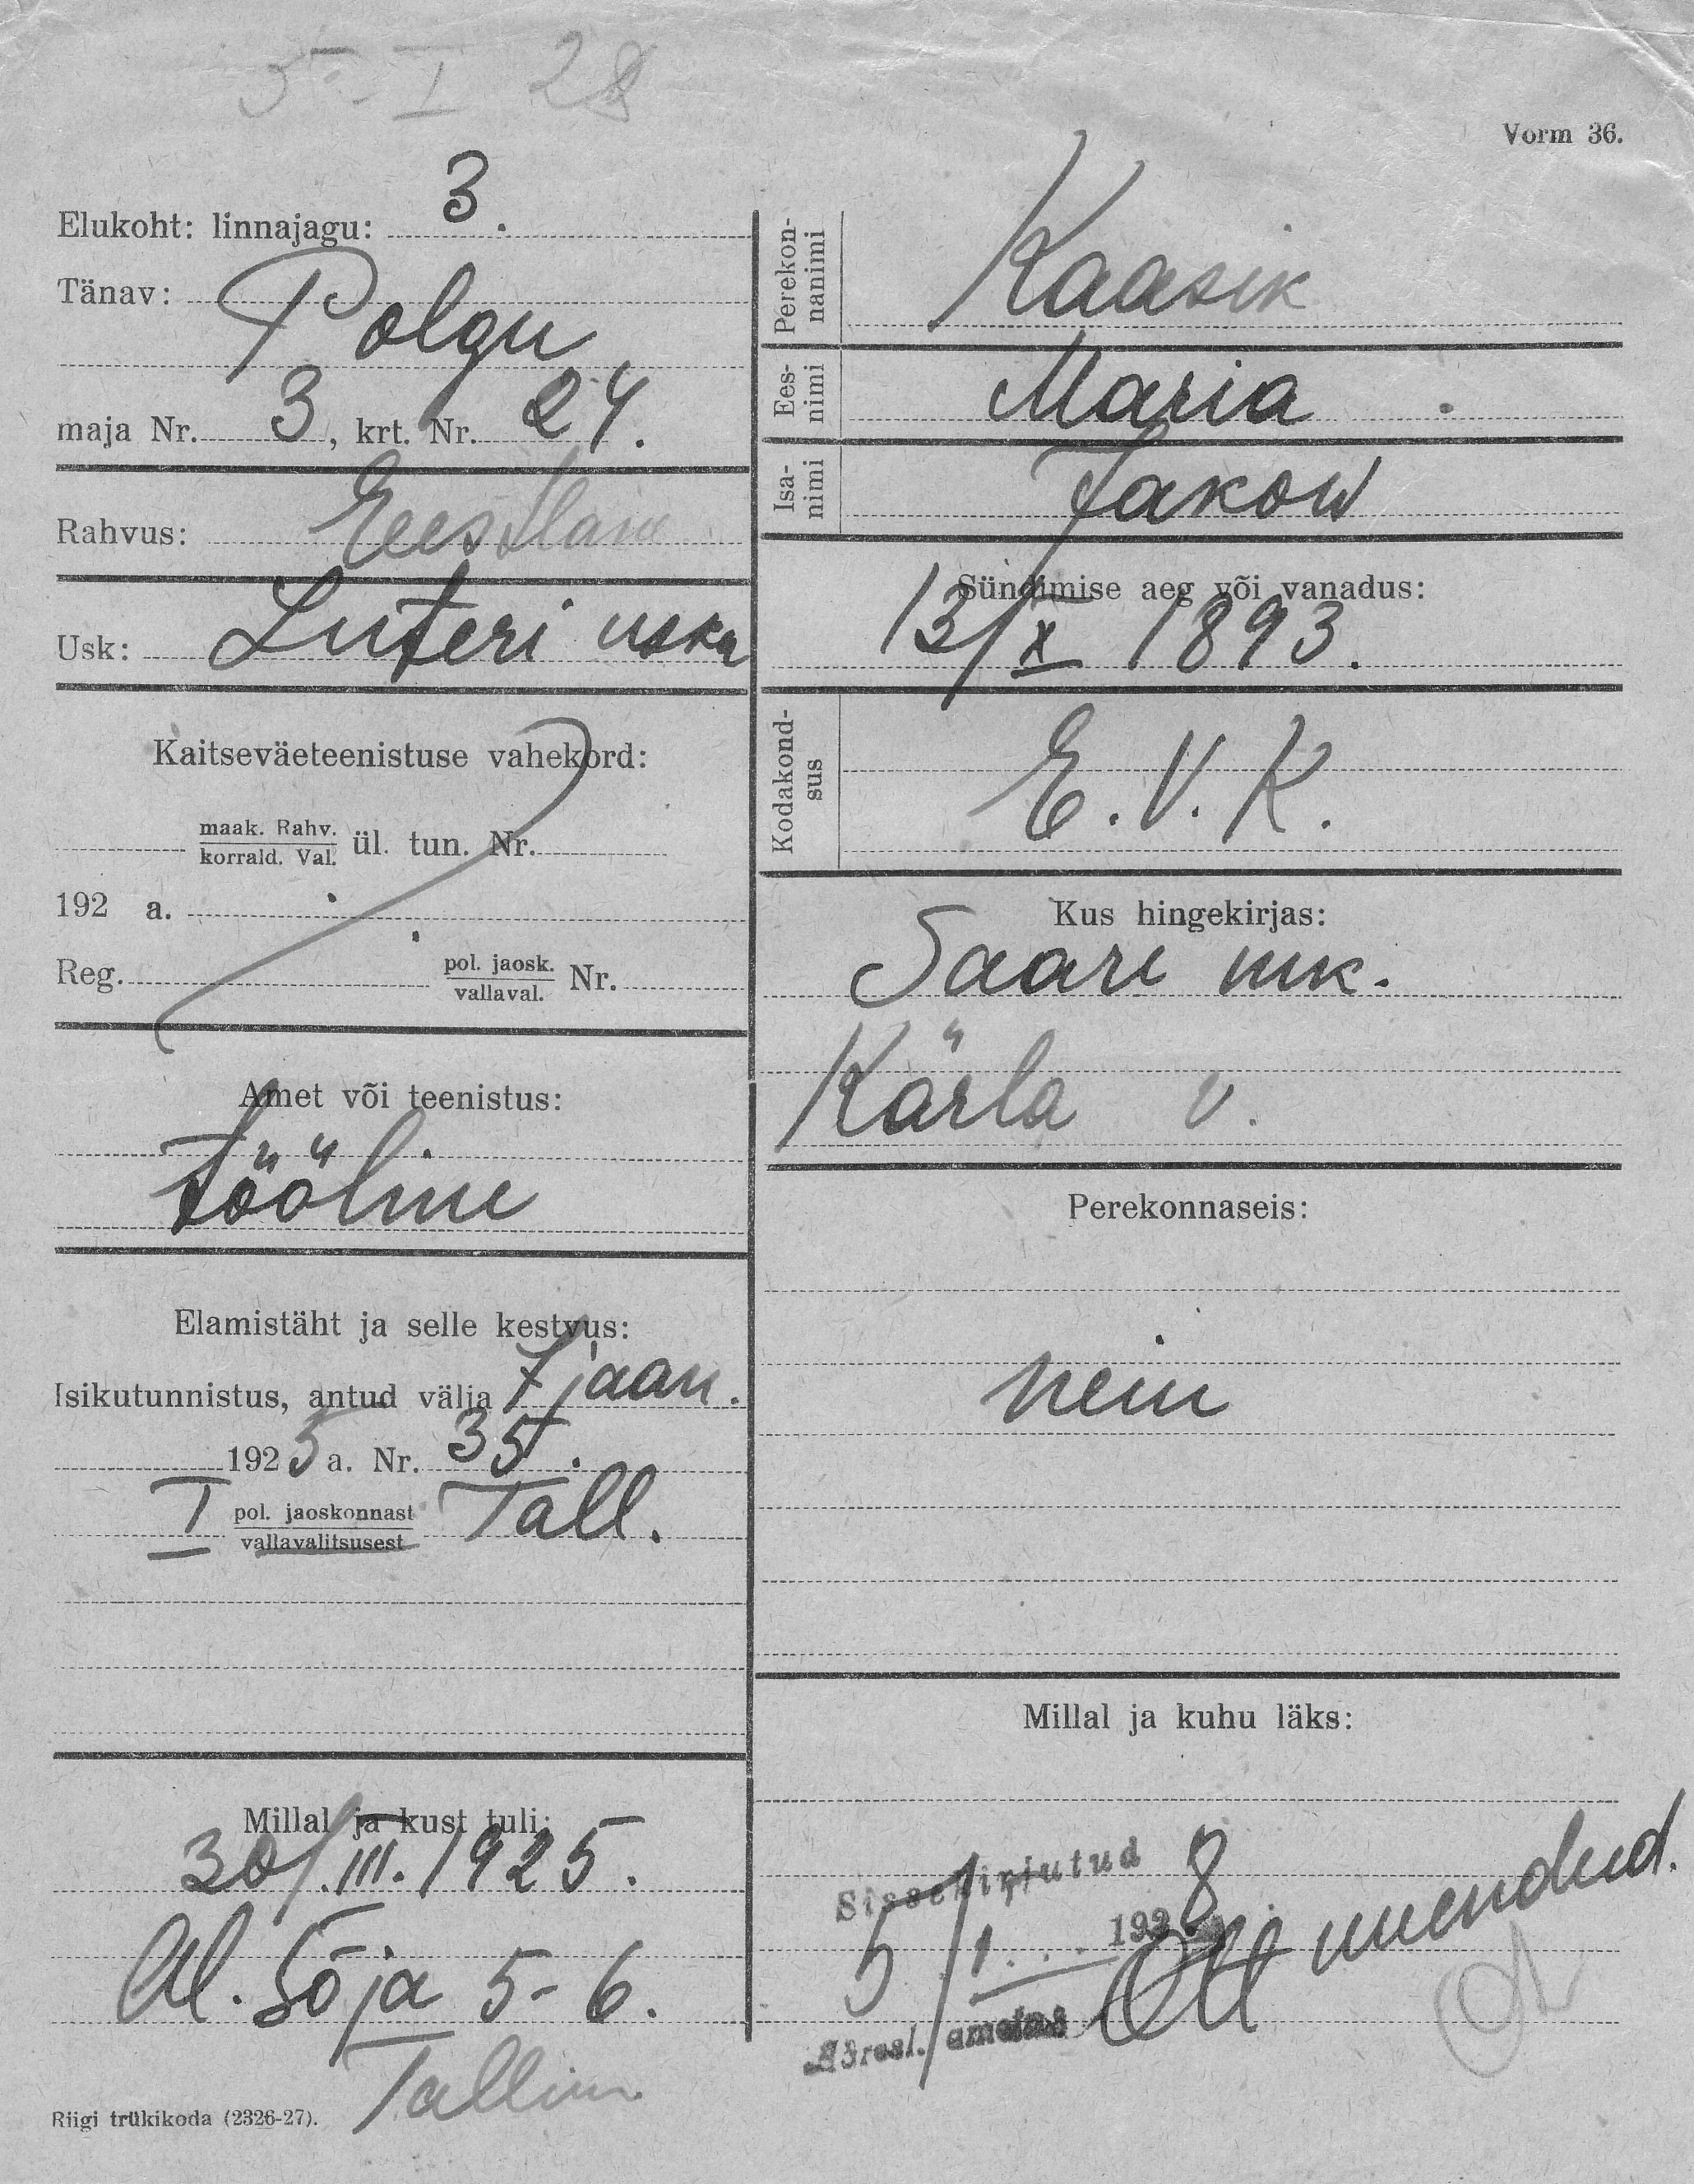 5. I 28
Vorm 36.
Elukoht: linnajagu: 3.
Tänav: Polgu
maja Nr. 3, krt. Nr. 24.
Rahvus: Eestlane
Usk: Luteri usku
Kaitseväeteenistuse vahekord:
maak. Rahv.
korrald. Val. ül. tun. Nr.
192 a.
Reg. pol. jaosk.
vallaval. Nr.
Amet või teenistus:
tööline
Elamistäht ja selle kestvus:
Isikutunnistus, antud välja 7 jaan.
1925 a. Nr. 35.
I pol. jaoskonnast Tall.
vallavalitsusest
Millal ja kust tuli:
30/III. 1925.
Sõja 5-6.
Tallinn
Riigi trükikoda (2326-27).
Perekon-
nanimi Kaasik
Ees-
nimi Maria
Isa-
nimi Jakow
Sündimise aeg või vanadus:
13/X 1893.
Kodakond-
sus E. V. K.
Kus hingekirjas:
Saare mk.
Kärla v.
Perekonnaseis:
nein
Millal ja kuhu läks:
Sissekirjutud
5/1. 1928
Adresl. ametas
uuendud.